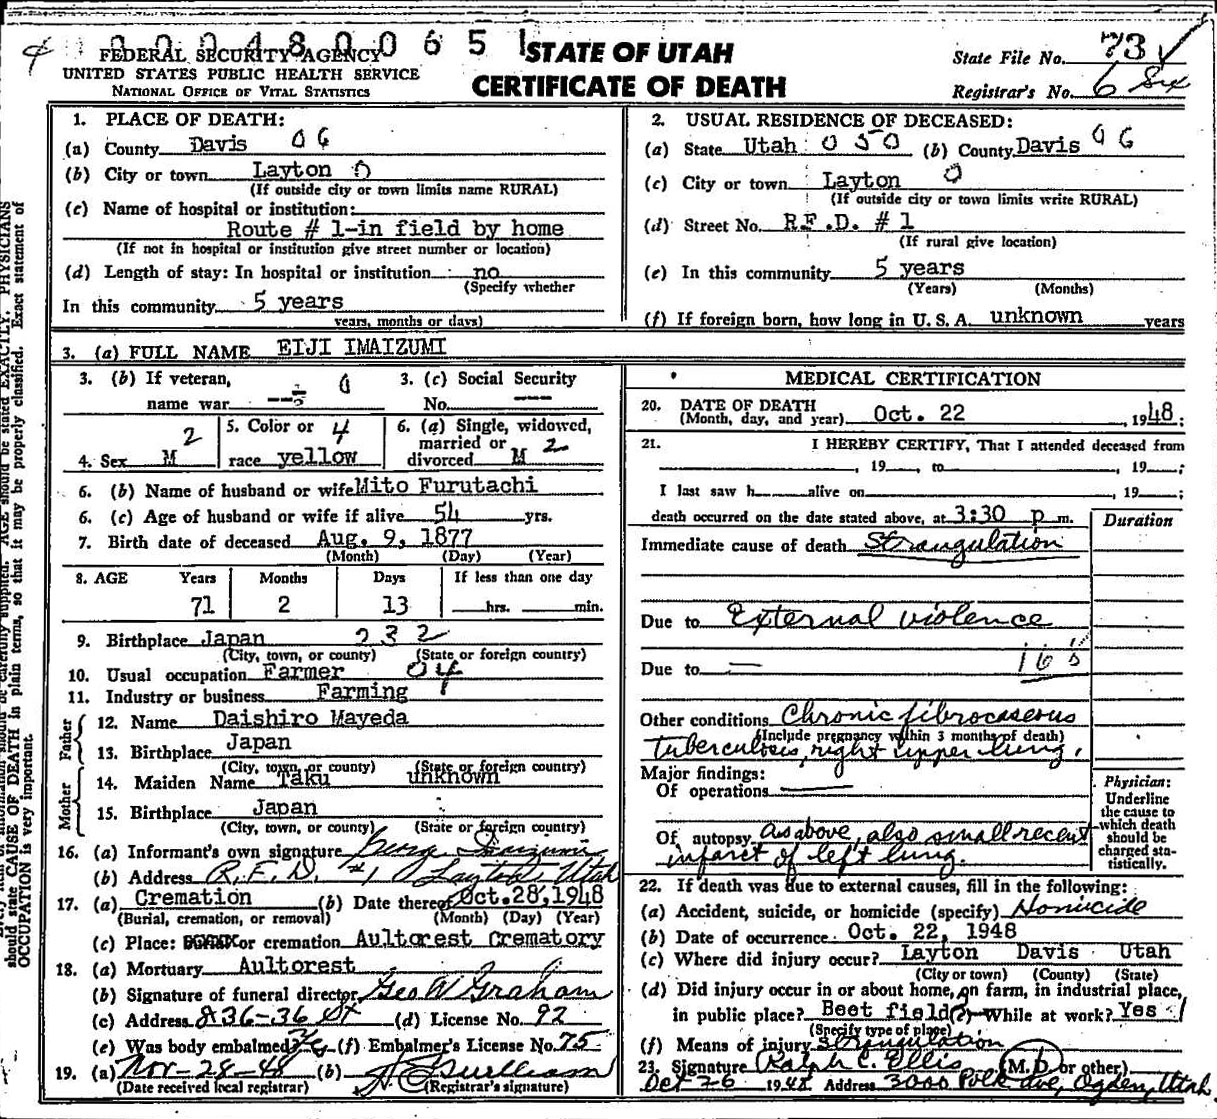 0 0 0 4 8 0 0 6 5 1
FEDERAL SECURITY AGENCY
UNITED STATES PUBLIC HEALTH SERVICE
NATIONAL OFFICE OF VITAL STATISTICS
STATE OF UTAH
CERTIFICATE OF DEATH
State File No. 73
Registrar's No. 6 Six
1. PLACE OF DEATH:
(a) County Davis 0 6
(b) City or town Layton 0
(If outside city or town limits name RURAL)
(c) Name of hospital or institution:
Route # 1-in field by home
(If not in hospital or institution give street number or location)
(d) Length of stay: In hospital or institution no
(Specify whether
In this community 5 years
years, months or days)
2. USUAL RESIDENCE OF DECEASED:
(a) State Utah 0 5 0 (b) County Davis 0 6
(c) City or town Layton 0
(If outside city or town limits write RURAL)
(d) Street No. R.F.D. # 1
(If rural give location)
(e) In this community 5 years
(Years) (Months)
(f) If foreign born, how long in U. S. A. unknown years
3. (a) FULL NAME EIJI IMAIZUMI
3. (b) If veteran, 0
name war --
3. (c) Social Security
No. ---
4. Sex M 2
5. Color or 4
race yellow
6. (a) Single, widowed,
married or
divorced M 2
6. (b) Name of husband or wife Mito Furutachi
6. (c) Age of husband or wife if alive 54 yrs.
7. Birth date of deceased Aug. 9, 1877
(Month) (Day) (Year)
8. AGE Years Months Days If less than one day
71 2 13 hrs. min.
9. Birthplace Japan 2 3 2
(City, town, or county) (State or foreign country)
10. Usual occupation Farmer 04
11. Industry or business Farming
Father
12. Name Daishiro Mayeda
13. Birthplace Japan
(City, town, or county) (State or foreign country)
Mother
14. Maiden Name Taku unknown
15. Birthplace Japan
(City, town, or county) (State or foreign country)
16. (a) Informant's own signature George Imaizumi
(b) Address R. F. D. #1 Layton, Utah
17. (a) Cremation (b) Date thereof Oct. 28, 1948
(Burial, cremation, or removal) (Month) (Day) (Year)
(c) Place: or cremation Aultorest Crematory
18. (a) Mortuary Aultorest
(b) Signature of funeral director Geo W Graham
(c) Address 836-36 St (d) License No. 92
(e) Was body embalmed? (f) Embalmer's License No. 75
19. (a) Nov-28-48 (b)
(Date received local registrar) (Registrar's signature)
MEDICAL CERTIFICATION
20. DATE OF DEATH
(Month, day, and year) Oct. 22, 1948;
21. I HEREBY CERTIFY, That I attended deceased from
, 19 , to , 19 ;
I last saw h alive on , 19 ;
death occurred on the date stated above, at 3:30 p m.
Duration
Immediate cause of death Strangulation
Due to External violence
Due to —
Other conditions Chronic fibrocaseous
(Include pregnancy within 3 months of death)
tuberculosis, right upper lung.
Major findings:
Of operations
Of autopsy As above, also small recent
infarct of left lung.
Physician:
Underline
the cause to
which death
should be
charged sta-
tistically.
22. If death was due to external causes, fill in the following:
(a) Accident, suicide, or homicide (specify) Homicide
(b) Date of occurrence Oct. 22, 1948
(c) Where did injury occur? Layton Davis Utah
(City or town) (County) (State)
(d) Did injury occur in or about home, on farm, in industrial place,
in public place? Beet field(?) While at work? Yes
(Specify type of place)
(f) Means of injury strangulation
23. Signature Ralph C. Ellis (M. D. or other)
Oct 26 1948 Address 3000 Polk Ave, Ogden, Utah.
should state CAUSE OF DEATH in plain terms, so that it may be properly classified. Exact statement of
OCCUPATION is very important.